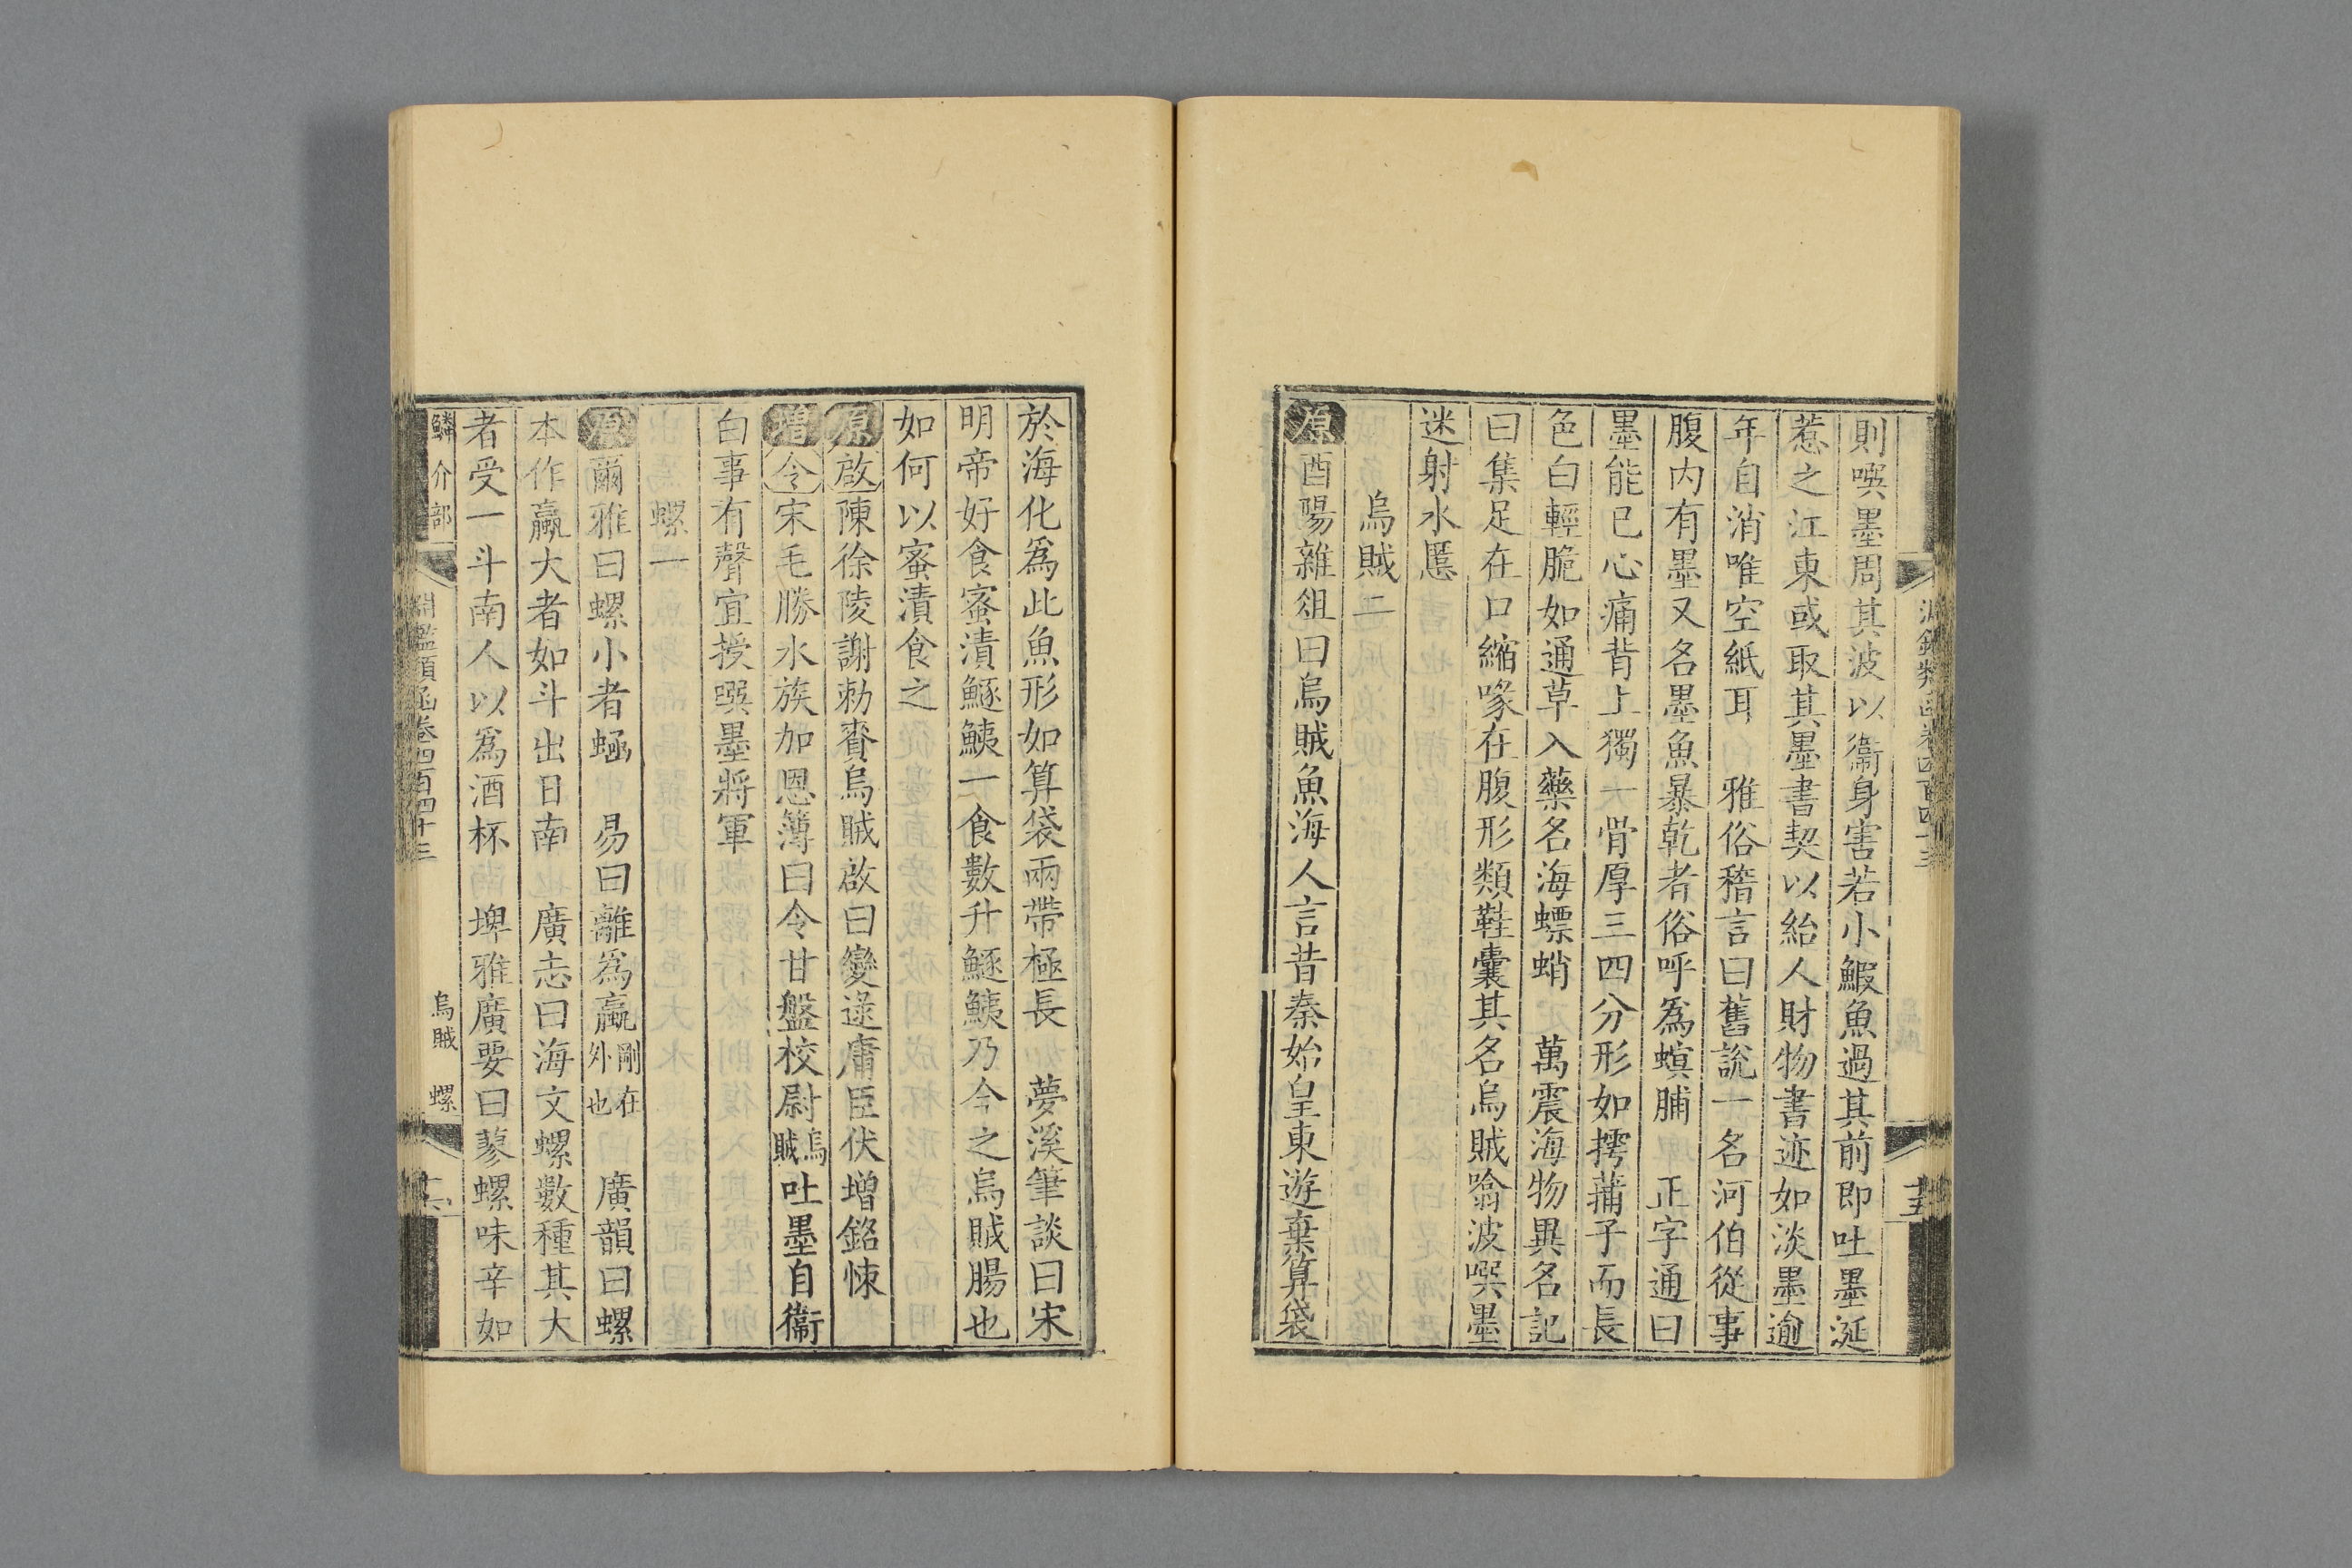 淵鑑類函卷四百四十三
十五
則噀墨周其波以衞身害若小鰕魚過其前即吐墨涎
惹之江東或取其墨書契以紿人財物書迹如淡墨逾
年自消唯空紙耳 雅俗稽言曰舊說一名河伯從事
腹内有墨又名墨魚暴乾者俗呼爲螟脯 正字通曰
墨能已心痛背上獨一骨厚三四分形如摴蒲子而長
色白輕脆如通草入藥名海螵蛸 萬震海物異名記
曰集足在口縮喙在腹形類鞋囊其名烏賊噏波噀墨
迷射水慝
烏賊二
原酉陽雜俎曰烏賊魚海人言昔秦始皇東遊棄筭袋
於海化爲此魚形如筭袋兩帶極長 夢溪筆談曰宋
明帝好食蜜漬鱁鮧一食數升鱁鮧乃今之烏賊腸也
如何以蜜漬食之
原啟陳徐陵謝勑賚烏賊啟曰變逯庸臣伏增銘悚
增令宋毛勝水族加恩簿曰令甘盤校尉烏賊吐墨自衞
白事有聲宜授噀墨將軍
螺一
原爾雅曰螺小者蜬 易曰離爲蠃剛在外也 廣韻曰螺
本作蠃大者如斗出日南 廣志曰海文螺數種其大
者受一斗南人以爲酒杯 埤雅廣要曰蓼螺味辛如
鱗介部
淵鑑類函卷四百四十三
烏賊 螺
十六